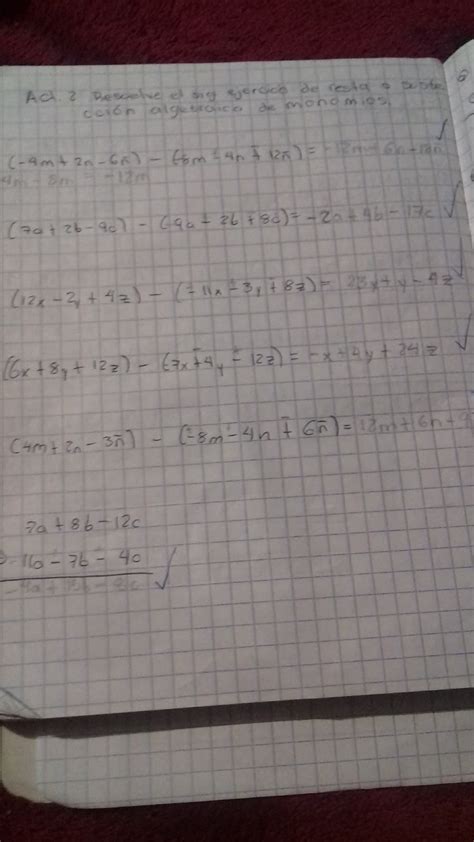 Act. 2 Resuelve el sig ejercicio de resta o
cción algebraica de monomios.
(-4m + 2n - 6ñ) - (8m - 4n + 12ñ) = -12m + 6n - 18ñ
4m - 8m = -12m
(7a + 2b - 9c) - (9a - 2b + 8c) = -2a + 4b - 17c
(12x - 2y + 4z) - (-11x - 3y + 8z) = 23x + y - 4z
(6x + 8y + 12z) - (7x + 4y - 12z) = -x + 4y + 24z
(4m + 2n - 3ñ) - (-8m - 4n + 6ñ) = 12m + 6n +
7a + 8b - 12c
- 7b - 4c